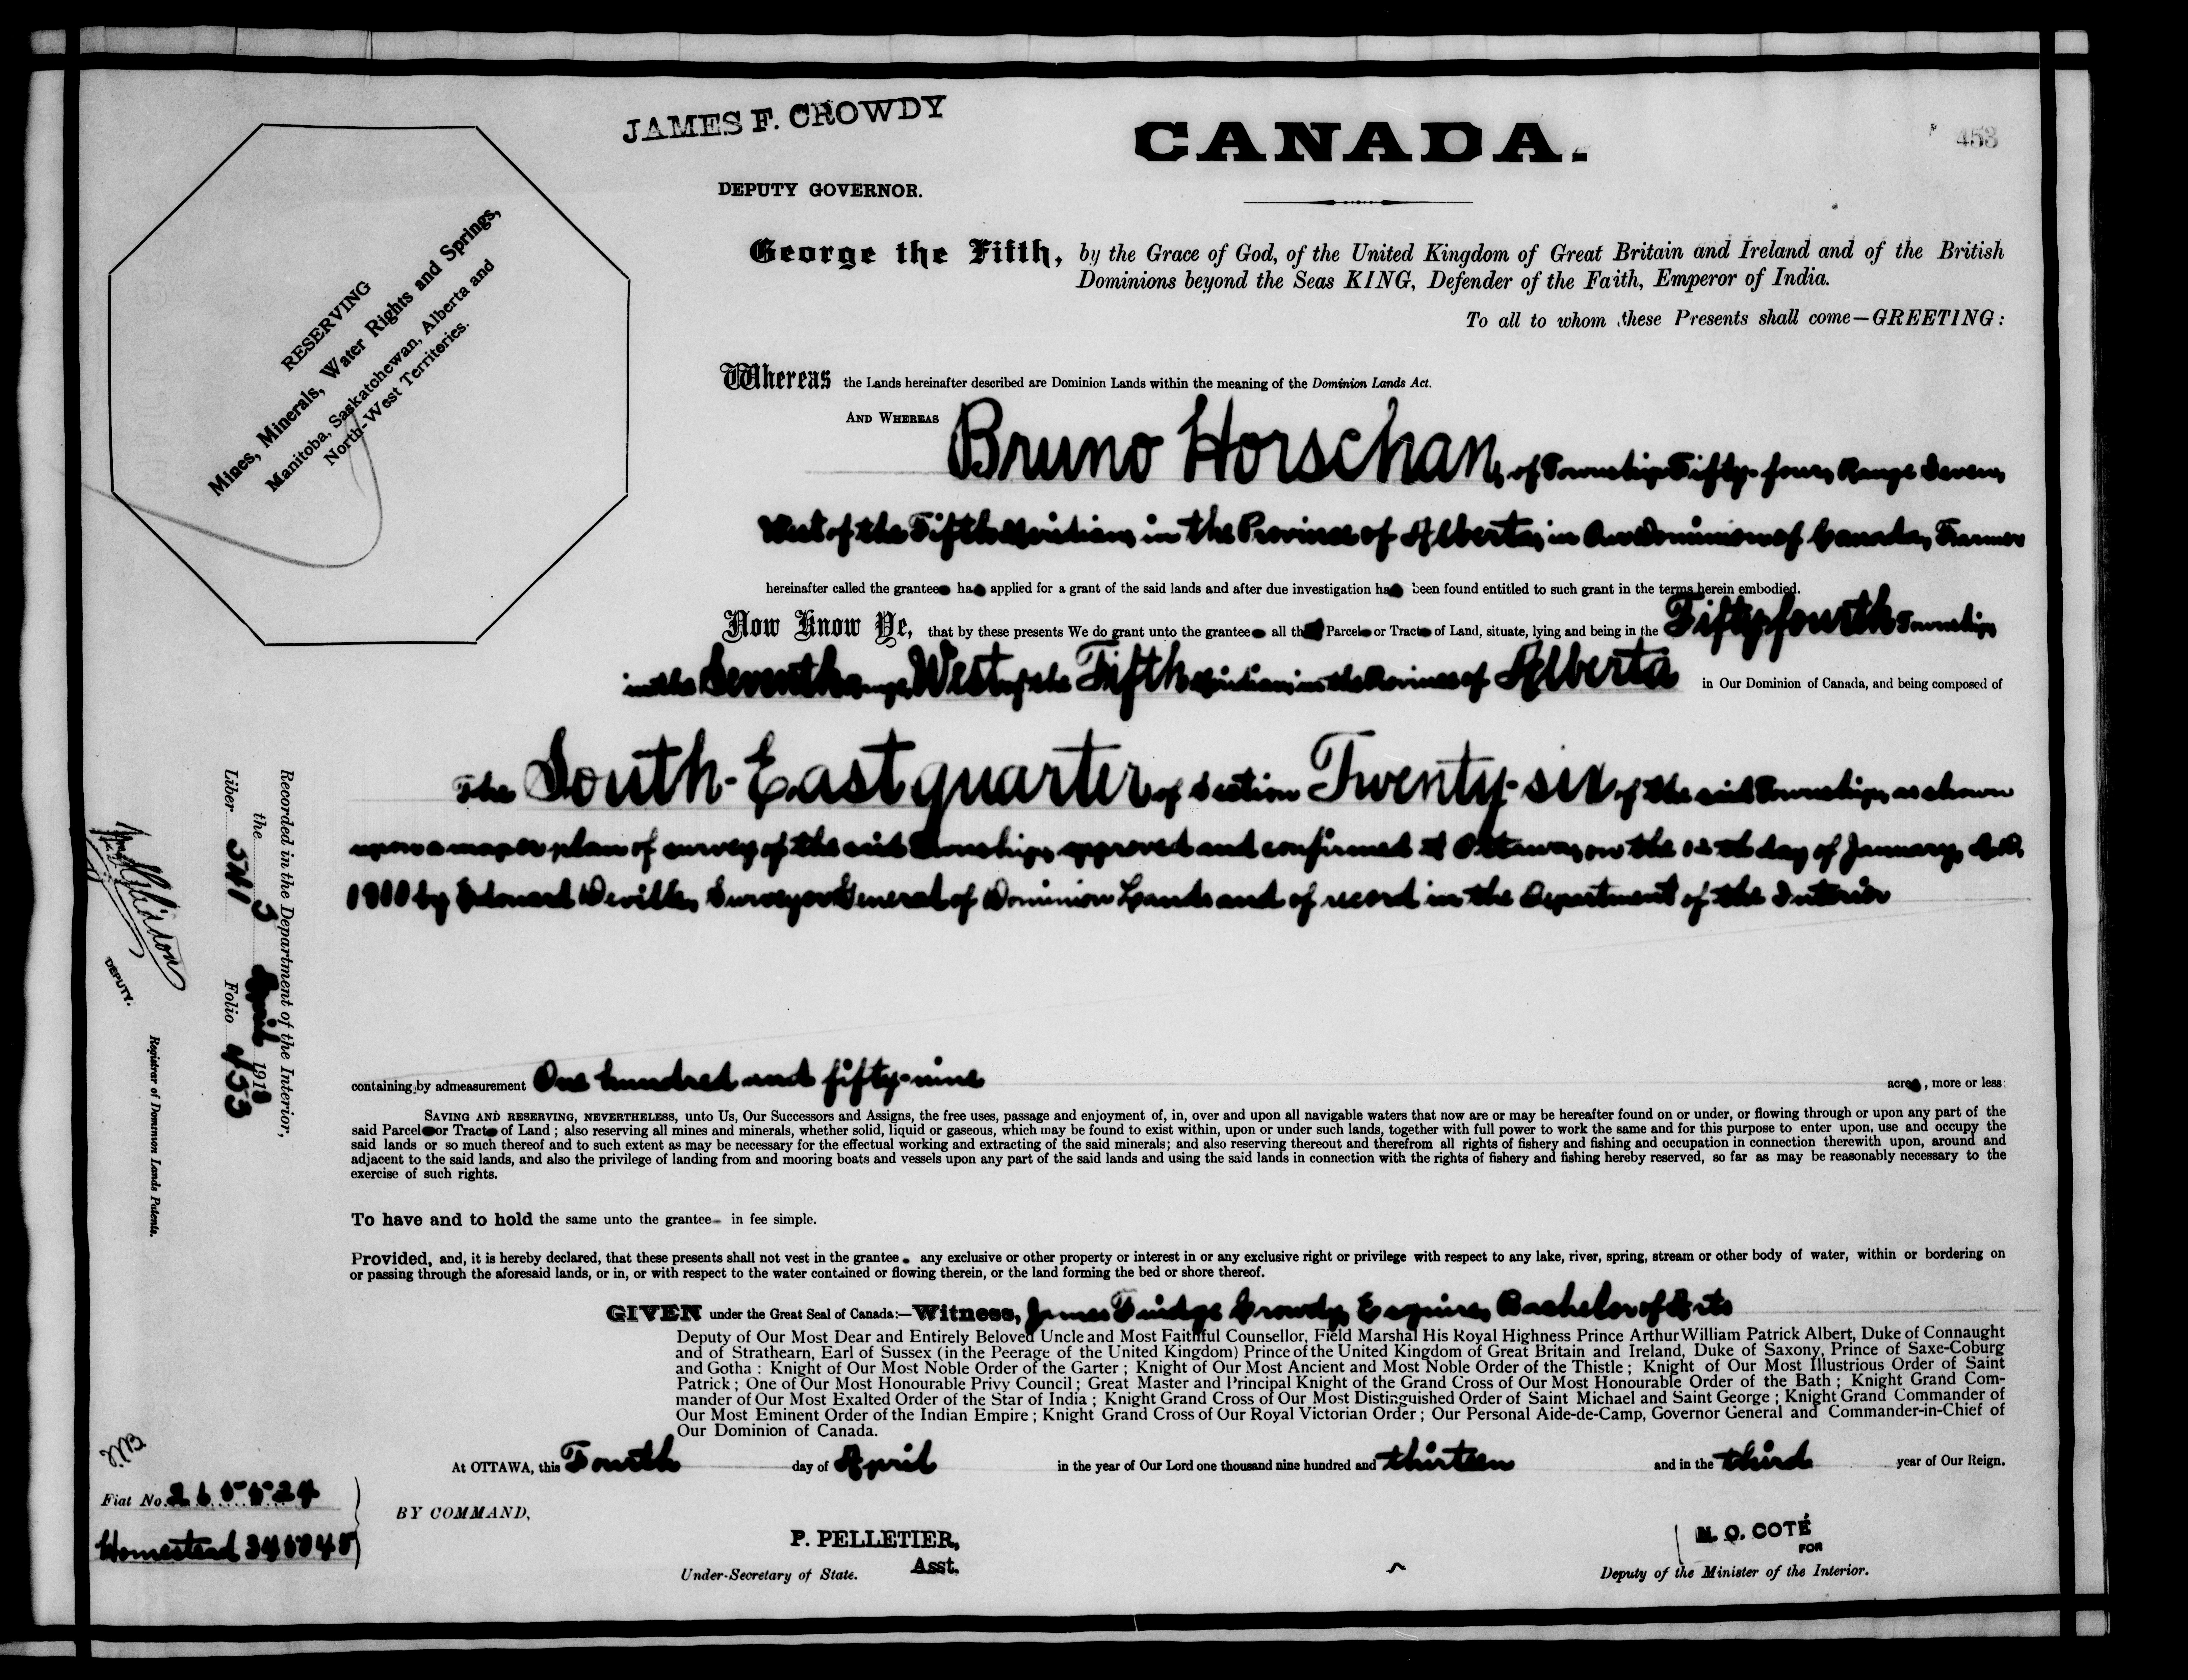 JAMES F. CROWDY
CANADA.
453
DEPUTY GOVERNOR.
RESERVING
Mines, Minerals, Water Rights and Springs,
Manitoba, Saskatchewan, Alberta and
North-West Territories.
George the Fifth, by the Grace of God, of the United Kingdom of Great Britain and Ireland and of the British
Dominions beyond the Seas KING, Defender of the Faith, Emperor of India.
To all to whom these Presents shall come—GREETING:
Whereas the Lands hereinafter described are Dominion Lands within the meaning of the Dominion Lands Act.
AND WHEREAS Bruno Horschan, of Township Fifty-four, Range Seven,
West of the Fifth Meridian, in the Province of Alberta, in Our Dominion of Canada, Farmer
hereinafter called the grantee has applied for a grant of the said lands and after due investigation has been found entitled to such grant in the terms herein embodied.
Now Know Ye, that by these presents We do grant unto the grantee all that Parcel or Tract of Land, situate, lying and being in the Fifty-fourth Township
in the Seventh range, West of the Fifth Meridian, in the Province of Alberta in Our Dominion of Canada, and being composed of
The South-East quarter of Section Twenty-six of the said Township, as shown
upon a map or plan of survey of the said Township, approved and confirmed at Ottawa, on the day of January, A.D.
1910 by Edouard Deville, Surveyor General of Dominion Lands and of record in the Department of the Interior
containing by admeasurement One hundred and fifty-nine acres, more or less:
SAVING AND RESERVING, NEVERTHELESS, unto Us, Our Successors and Assigns, the free uses, passage and enjoyment of, in, over and upon all navigable waters that now are or may be hereafter found on or under, or flowing through or upon any part of the
said Parcel or Tract of Land; also reserving all mines and minerals, whether solid, liquid or gaseous, which may be found to exist within, upon or under such lands, together with full power to work the same and for this purpose to enter upon, use and occupy the
said lands or so much thereof and to such extent as may be necessary for the effectual working and extracting of the said minerals; and also reserving thereout and therefrom all rights of fishery and fishing and occupation in connection therewith upon, around and
adjacent to the said lands, and also the privilege of landing from and mooring boats and vessels upon any part of the said lands and using the said lands in connection with the rights of fishery and fishing hereby reserved, so far as may be reasonably necessary to the
exercise of such rights.
To have and to hold the same unto the grantee in fee simple.
Provided, and, it is hereby declared, that these presents shall not vest in the grantee any exclusive or other property or interest in or any exclusive right or privilege with respect to any lake, river, spring, stream or other body of water, within or bordering on
or passing through the aforesaid lands, or in, or with respect to the water contained or flowing therein, or the land forming the bed or shore thereof.
GIVEN under the Great Seal of Canada:—Witness, James Fuidge Crowdy, Esquire, Bachelor of Arts
Deputy of Our Most Dear and Entirely Beloved Uncle and Most Faithful Counsellor, Field Marshal His Royal Highness Prince Arthur William Patrick Albert, Duke of Connaught
and of Strathearn, Earl of Sussex (in the Peerage of the United Kingdom) Prince of the United Kingdom of Great Britain and Ireland, Duke of Saxony, Prince of Saxe-Coburg
and Gotha: Knight of Our Most Noble Order of the Garter; Knight of Our Most Ancient and Most Noble Order of the Thistle; Knight of Our Most Illustrious Order of Saint
Patrick; One of Our Most Honourable Privy Council; Great Master and Principal Knight of the Grand Cross of Our Most Honourable Order of the Bath; Knight Grand Com-
mander of Our Most Exalted Order of the Star of India; Knight Grand Cross of Our Most Distinguished Order of Saint Michael and Saint George; Knight Grand Commander of
Our Most Eminent Order of the Indian Empire; Knight Grand Cross of Our Royal Victorian Order; Our Personal Aide-de-Camp, Governor General and Commander-in-Chief of
Our Dominion of Canada.
At OTTAWA, this Fourth day of April in the year of Our Lord one thousand nine hundred and thirteen and in the third year of Our Reign.
BY COMMAND,
P. PELLETIER,
Asst.
Under-Secretary of State.
N. O. COTÉ
FOR
Deputy of the Minister of the Interior.
Recorded in the Department of the Interior,
the 3 April 1913
Liber Folio 453
DEPUTY.
Registrar of Dominion Lands Patents.
Fiat No.
Homestead